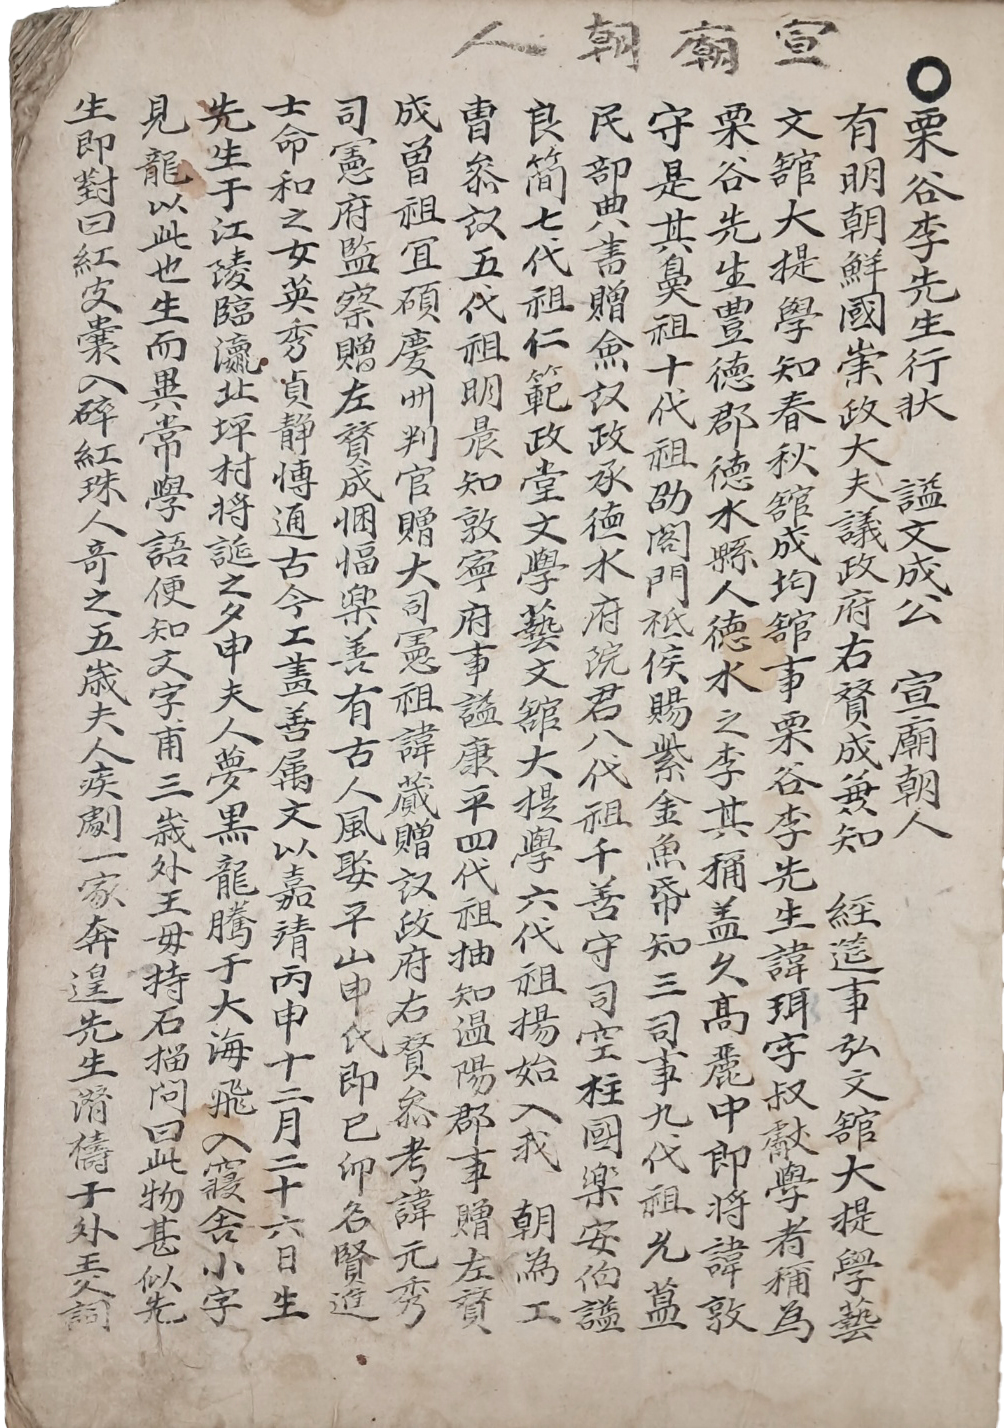 宣廟朝人
栗谷李先生行狀 謚文成公 宣廟朝人
有明朝鮮國崇政大夫議政府右賛成兼知 經筵事弘文舘大提學藝
文舘大提學知春秋舘成均舘事栗谷李先生諱珥字叔獻學者稱為
栗谷先生豊德郡德水縣人德水之李其稱盖久高麗中郎將諱敦
守是其鼻祖十代祖劭閤門祗侯賜紫金魚帒知三司事九代祖允蒀
民部典書贈僉議政丞德水府院君八代祖千善守司空柱國樂安伯謚
良簡七代祖仁範政堂文學藝文舘大提學六代祖揚始入我 朝為工
曺叅議五代祖明晨知敦寧府事謚康平四代祖抽知溫陽郡事贈左賛
成曾祖宜碩慶州判官贈大司憲祖諱蕆贈議政府右賛叅考諱元秀
司憲府監察贈左賛成悃愊樂善有古人風娶平山申氏即己卯名賢進
士命和之女英秀貞静慱通古今工畵善属文以嘉靖丙申十二月二十六日生
先生于江陵臨瀛北坪村将誕之夕申夫人夢黒龍騰于大海飛入寢舍小字
見龍以此也生而異常學語便知文字甫三歲外王母持石榴問曰此物甚似先
生即對曰紅皮囊入碎紅珠人奇之五歲夫人疾劇一家奔遑先生潛禱于外王父詞